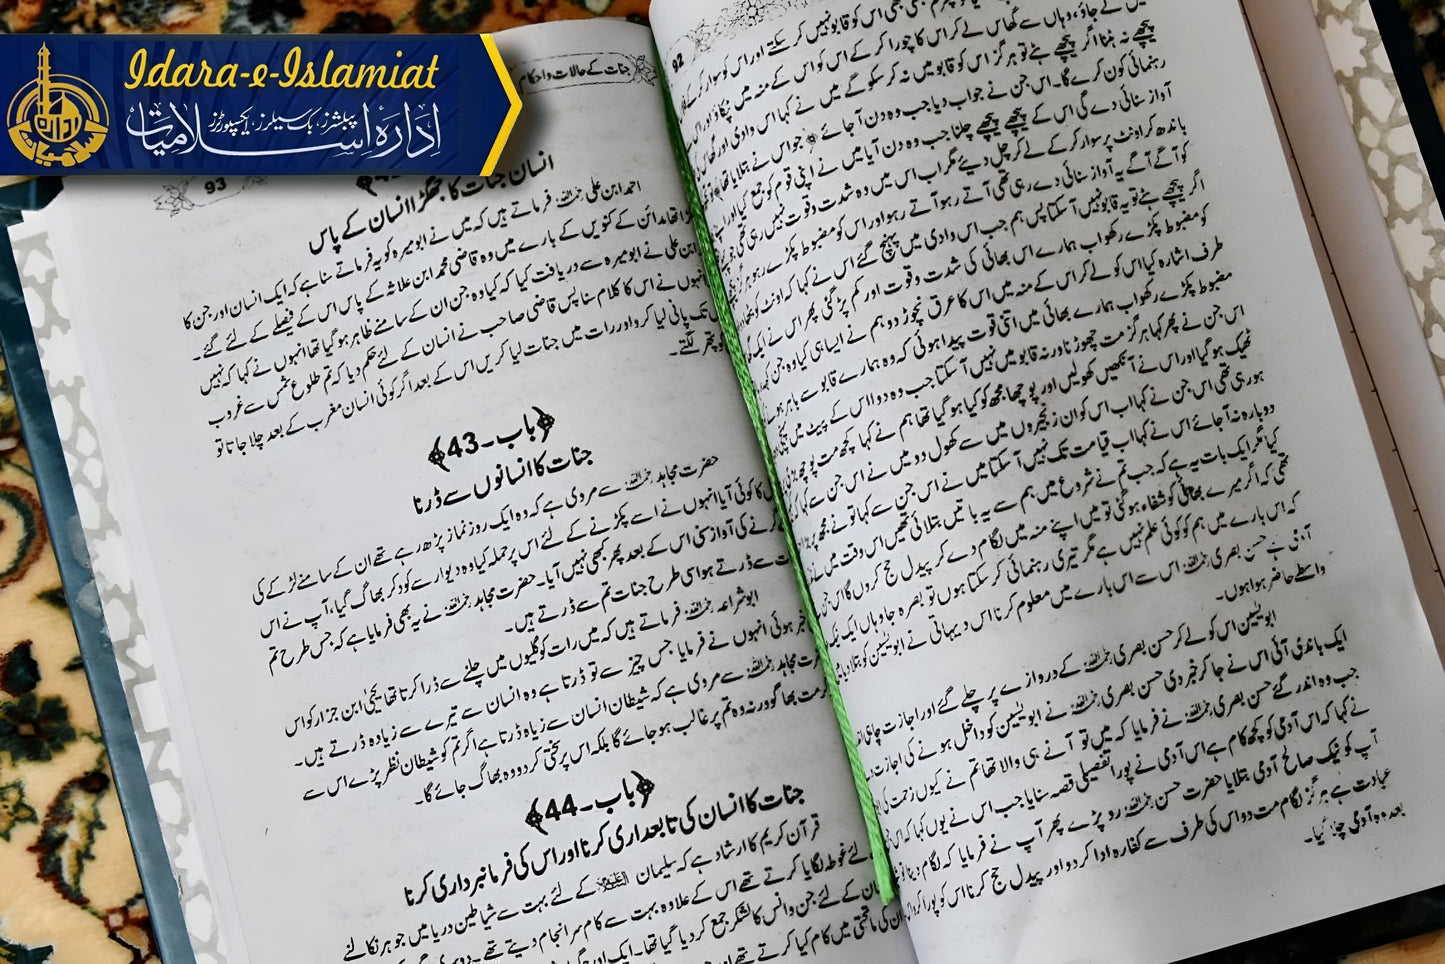 Idara-e-Islamiat
ادارہ اسلامیات
پبلشرز، بک سیلرز، ایکسپورٹرز
92
لے جاؤ، وہاں سے گھاس لے کر اس کا چورا کر کے اس کو اس کے منہ میں ٹپکاؤ اور اس
پیچھے نہ ہٹنا اگر پیچھے ہٹے تو ہرگز اس کو قابو میں نہ کر سکو گے میں نے کہا اس وادی اور گھاس
رہنمائی کون کرے گا۔ اس جن نے جواب دیا جب وہ دن آ جائے جو اس نے بتلایا تھا
آواز سنائی دے گی اس کے پیچھے پیچھے چلنا جب وہ دن آیا میں نے اپنی قوم کو جمع کیا اور اپنے
باندھ کر اونٹ پر سوار کر کے لے کر چل دیئے مگر اب اس میں وہ شدت و قوت نہیں رہی تھی
کو آگے آگے یہ آواز سنائی دے رہی تھی آتے رہو آتے رہو اور اس کو مضبوط پکڑے رہو
اگر پیچھے ہٹے تو یہ قابو نہیں آ سکتا پس ہم جب اس وادی میں پہنچ گئے اس نے کہا کہ اونٹ کو
کو مضبوط پکڑے رکھو اب ہمارے اس بھائی کی شدت و قوت اور کم پڑ گئی پھر اس نے ایک
طرف اشارہ کیا اس کو لے کر اس کے منہ میں اس کا عرق نچوڑ دو ہم نے ایسا ہی کیا وہ جن کہہ
مضبوط پکڑے رکھو اب ہمارے بھائی میں اتنی قوت پیدا ہوئی کہ وہ ہمارے قابو سے باہر ہو
اس جن نے پھر کہا ہرگز مت چھوڑنا ورنہ قابو میں نہیں آ سکتا جب وہ دوا اس کے پیٹ میں پہنچی
ٹھیک ہو گیا اور اس نے آنکھیں کھولیں اور پوچھا مجھ کو کیا ہو گیا تھا ہم نے کہا کچھ مت پوچھو
ہو رہی تھی اس جن نے کہا اب اس کو ان زنجیروں میں سے کھول دو میں نے اس جن سے کہا
دوبارہ نہ آ جائے اس نے کہا اب قیامت تک نہیں آ سکتا میں نے اس جن سے کہا تو نے مجھ پر
کیا مگر ایک بات یہ ہے کہ جب تم نے شروع میں ہم سے یہ باتیں بتلائی تھیں اس وقت میں نے
تھی کہ اگر میرے بھائی کو شفاء ہو گئی تو میں اپنے منہ میں لگام دے کر پیدل حج کروں گا اس جن
کہ اس بارے میں ہم کو کوئی علم نہیں ہے مگر تیری رہنمائی کر سکتا ہوں تو بصرہ جا وہاں ایک
آدمی ہے حسن بصری اس سے اس بارے میں معلوم کرنا اس دیہاتی نے ابو یٰسین کو بتلایا میں
واسطے حاضر ہوا ہوں۔
ابو یٰسین اس کو لے کر حسن بصری کے دروازے پر چلے گئے اور اجازت چاہی
ایک باندی آئی اس نے جا کر خبر دی حسن بصری نے ابو یٰسین کو داخل ہونے کی اجازت دی
جب وہ اندر گئے حسن بصری نے فرمایا کہ میں تو آنے ہی والا تھا تم نے کیوں زحمت کی
نے کہا کہ اس آدمی کو کچھ کام ہے اس آدمی نے پورا تفصیلی قصہ سنایا جب اس نے یوں کہا کہ اس
آپ کو نیک صالح آدمی بتلایا حضرت حسن رو پڑے پھر آپ نے فرمایا کہ لگام دینا تو
عبادت ہے ہرگز لگام مت دو اس کی طرف سے کفارہ ادا کر دو اور پیدل حج کرنا اس کو پورا کر
بعد وہ آدمی چلا گیا۔
جنات کے حالات و احکام
93
انسان جنات کا جھگڑا انسان کے پاس
احمد ابن علی فرماتے ہیں کہ میں نے ابو میسرہ کو یہ فرماتے سنا ہے کہ ایک انسان اور جن کا
تھا مدائن کے کنویں کے بارے میں وہ قاضی محمد ابن علاثہ کے پاس اس کے فیصلے کے لئے گئے۔
ابن علی نے ابو میسرہ سے دریافت کیا کہ کیا وہ جن ان کے سامنے ظاہر ہو گیا تھا انہوں نے کہا کہ نہیں
انہوں نے اس کا کلام سنا پس قاضی صاحب نے انسان کے لئے حکم دیا کہ تم طلوع شمس سے غروب
تک پانی لیا کرو اور رات میں جنات لیا کریں اس کے بعد اگر کوئی انسان مغرب کے بعد چلا جاتا تو
پتھر لگتے۔
﴿باب۔43﴾
جنات کا انسانوں سے ڈرنا
حضرت مجاہد سے مروی ہے کہ وہ ایک روز نماز پڑھ رہے تھے ان کے سامنے لڑکے کی
کا کوئی آیا انہوں نے اسے پکڑنے کے لئے اس پر حملہ کیا وہ دیوار سے کود کر بھاگ گیا، آپ نے اس
گرنے کی آواز سنی اس کے بعد پھر کبھی نہیں آیا۔ حضرت مجاہد نے یہ بھی فرمایا ہے کہ جس طرح تم
سے ڈرتے ہو اسی طرح جنات تم سے ڈرتے ہیں۔
ابو شراعہ فرماتے ہیں کہ میں رات کو گلیوں میں چلنے سے ڈرا کرتا تھا یحییٰ ابن جزار کو اس
خبر ہوئی انہوں نے فرمایا جس چیز سے تو ڈرتا ہے وہ انسان سے تیرے سے زیادہ ڈرتے ہیں۔
مجاہد سے مروی ہے کہ شیطان انسان سے زیادہ ڈرتا ہے اگر تم کو شیطان نظر پڑے اس سے
مت بھاگو ورنہ وہ تم پر غالب ہو جائے گا بلکہ اس پر سختی کر دو وہ بھاگ جائے گا۔
﴿باب۔44﴾
جنات کا انسان کی تابعداری کرنا اور اس کی فرمانبرداری کرنا
قرآن کریم کا ارشاد ہے کہ سلیمان کے لئے بہت سے شیاطین دریا میں جوہر نکالنے
لئے غوطہ لگایا کرتے تھے اس کے علاوہ بہت سے کام سر انجام دیتے تھے۔
کے لئے جن و انس کا لشکر جمع کر دیا گیا تھا۔ ایک اور جگہ
کی ماتحتی میں کام کیا کرتے تھے اور